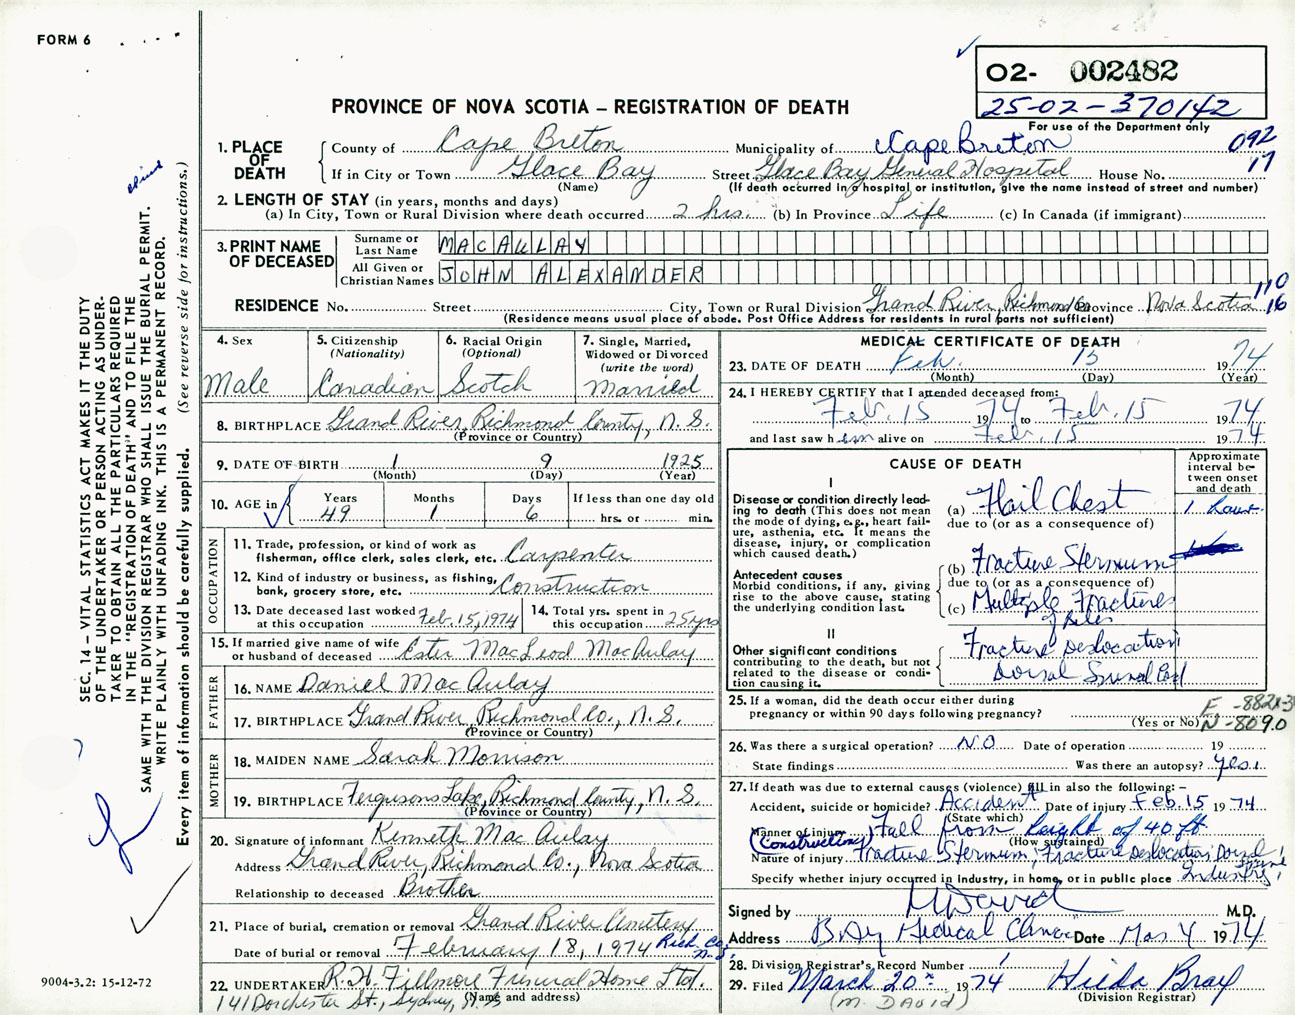 FORM 6
O2- 002482
25-02-370142
For use of the Department only
PROVINCE OF NOVA SCOTIA – REGISTRATION OF DEATH
092
17
1. PLACE OF DEATH
County of Cape Breton Municipality of Cape Breton
If in City or Town Glace Bay Street Glace Bay General Hospital House No.
(Name) (If death occurred in a hospital or institution, give the name instead of street and number)
2. LENGTH OF STAY (in years, months and days)
(a) In City, Town or Rural Division where death occurred 2 hrs. (b) In Province Life (c) In Canada (if immigrant)
3. PRINT NAME OF DECEASED
Surname or Last Name MACAULAY
All Given or Christian Names JOHN ALEXANDER
110
16
RESIDENCE No. Street City, Town or Rural Division Grand River, Richmond Co Province Nova Scotia
(Residence means usual place of abode. Post Office Address for residents in rural parts not sufficient)
4. Sex
Male
5. Citizenship
(Nationality)
Canadian
6. Racial Origin
(Optional)
Scotch
7. Single, Married,
Widowed or Divorced
(write the word)
Married
8. BIRTHPLACE Grand River, Richmond County, N.S.
(Province or Country)
9. DATE OF BIRTH 1 9 1925
(Month) (Day) (Year)
10. AGE in Years Months Days If less than one day old
49 1 6 hrs. or min.
OCCUPATION
11. Trade, profession, or kind of work as
fisherman, office clerk, sales clerk, etc. Carpenter
12. Kind of industry or business, as fishing,
bank, grocery store, etc. Construction
13. Date deceased last worked
at this occupation Feb. 15, 1974
14. Total yrs. spent in
this occupation 25 yrs
15. If married give name of wife
or husband of deceased Ester MacLeod MacAulay
FATHER
16. NAME Daniel MacAulay
17. BIRTHPLACE Grand River, Richmond Co., N.S.
(Province or Country)
MOTHER
18. MAIDEN NAME Sarah Morrison
19. BIRTHPLACE Fergusons Lake, Richmond County, N.S.
(Province or Country)
20. Signature of informant Kenneth MacAulay
Address Grand River, Richmond Co., Nova Scotia
Relationship to deceased Brother
21. Place of burial, cremation or removal Grand River Cemetery
Date of burial or removal February 18, 1974 Rich. Co. N.S.
22. UNDERTAKER R.H. Fillmore Funeral Home Ltd.
141 Dorchester St., Sydney, N.S
(Name and address)
MEDICAL CERTIFICATE OF DEATH
23. DATE OF DEATH Feb. 15 1974
(Month) (Day) (Year)
24. I HEREBY CERTIFY that I attended deceased from:
Feb. 15 1974 to Feb. 15 1974
and last saw him alive on Feb. 15 1974
CAUSE OF DEATH
Approximate
interval be-
tween onset
and death
I
Disease or condition directly lead-
ing to death (This does not mean
the mode of dying, e.g., heart fail-
ure, asthenia, etc. It means the
disease, injury, or complication
which caused death.)
(a) Flail Chest 1 hour
due to (or as a consequence of)
Antecedent causes
Morbid conditions, if any, giving
rise to the above cause, stating
the underlying condition last.
(b) Fracture Sternum
due to (or as a consequence of)
(c) Multiple Fractures
of Ribs
II
Other significant conditions
contributing to the death, but not
related to the disease or condi-
tion causing it.
Fracture Deslocation
Dorsal Spinal Cord
25. If a woman, did the death occur either during
pregnancy or within 90 days following pregnancy?
(Yes or No)
N-809.0
26. Was there a surgical operation? NO Date of operation 19
State findings Was there an autopsy? yes.
27. If death was due to external causes (violence) fill in also the following: –
Accident, suicide or homicide? Accident Date of injury Feb. 15 1974
(State which)
Manner of injury Fall from height of 40 ft.
(Construction) (How sustained)
Nature of injury Fracture Sternum, Fracture Deslocation Dorsal Spine
Specify whether injury occurred in Industry, in home, or in public place Industry
Signed by M David M.D.
Address Bay Medical Clinic Date Mar 4 1974
28. Division Registrar's Record Number 1
29. Filed March 20th 1974 Hilda Bray
(M. DAVID) (Division Registrar)
SEC. 14 – VITAL STATISTICS ACT MAKES IT THE DUTY
OF THE UNDERTAKER OR PERSON ACTING AS UNDER-
TAKER TO OBTAIN ALL THE PARTICULARS REQUIRED
IN THE "REGISTRATION OF DEATH" AND TO FILE THE
SAME WITH THE DIVISION REGISTRAR WHO SHALL ISSUE THE BURIAL PERMIT.
WRITE PLAINLY WITH UNFADING INK. THIS IS A PERMANENT RECORD.
Every item of information should be carefully supplied. (See reverse side for instructions.)
9004-3.2: 15-12-72